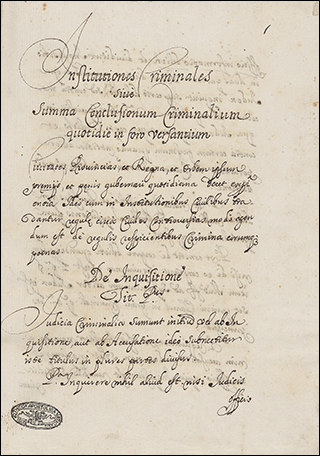 Institutiones Criminales
sive
Summa Conclusionum Criminalium
quotidie in foro versantium
Civitates, Provincias, et Regna, et Orbem ipsum
premijs et penis gubernari quotidiana docet expe-
rientia Ides cum in Institutionibus Civilibus tra
dantur regulę circa Civiles Controversias, modo agen
dum est de regulis respicientibus Crimina eorumq;
poenas
De Inquisitione
Tit. Pus
Judicia Criminalia sumunt initiũ vel ab In
quisitione, aut ab Accusatione ideò Subnectitur
iste titulus in plures partes divisus
Inquirere nihil aliud est nisi Judicis
officio